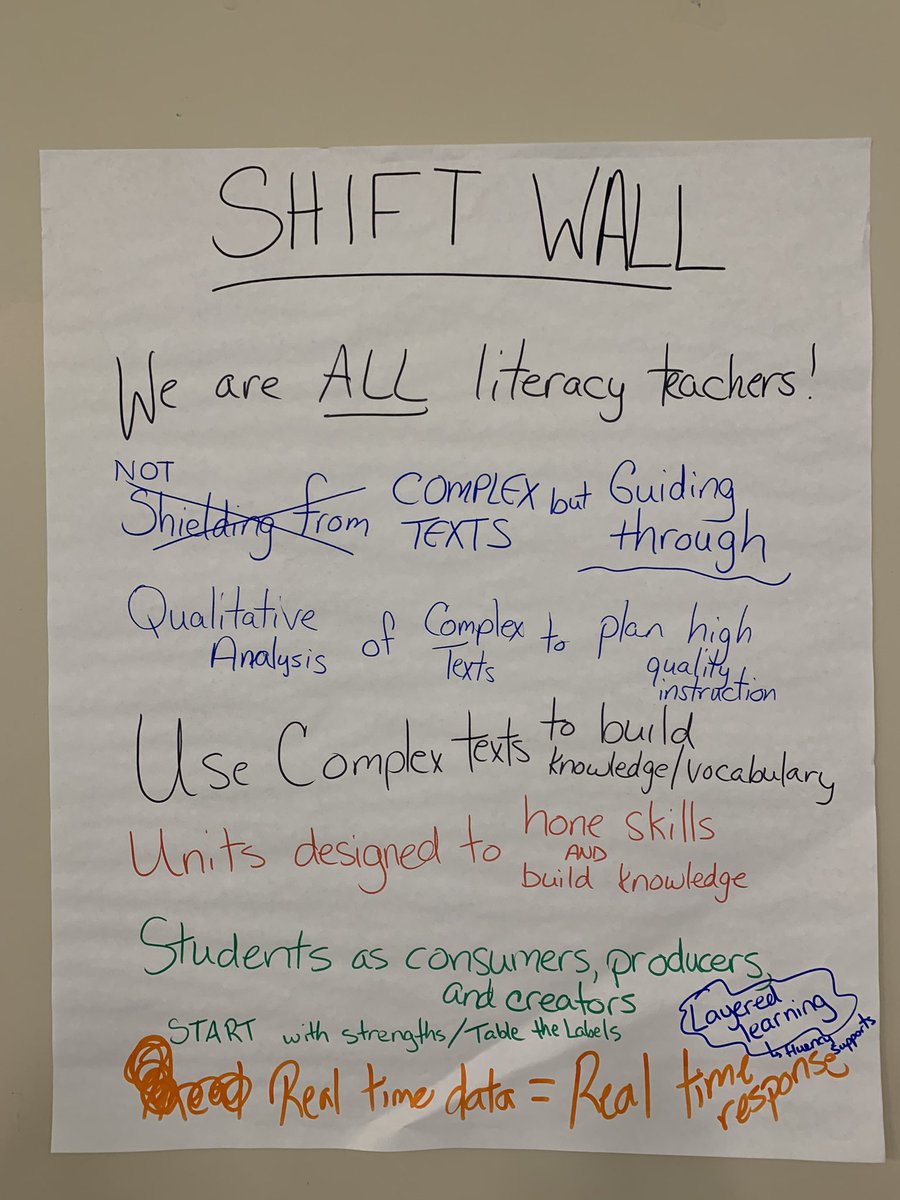 SHIFT WALL
We are ALL literacy teachers!
NOT
Shielding from COMPLEX TEXTS but Guiding through
Qualitative Analysis of Complex Texts to plan high quality instruction
Use Complex texts to build knowledge/vocabulary
Units designed to hone skills AND build knowledge
Students as consumers, producers, and creators
START with strengths/Table the Labels
Layered learning
↳ fluency supports
Real time data = Real time response